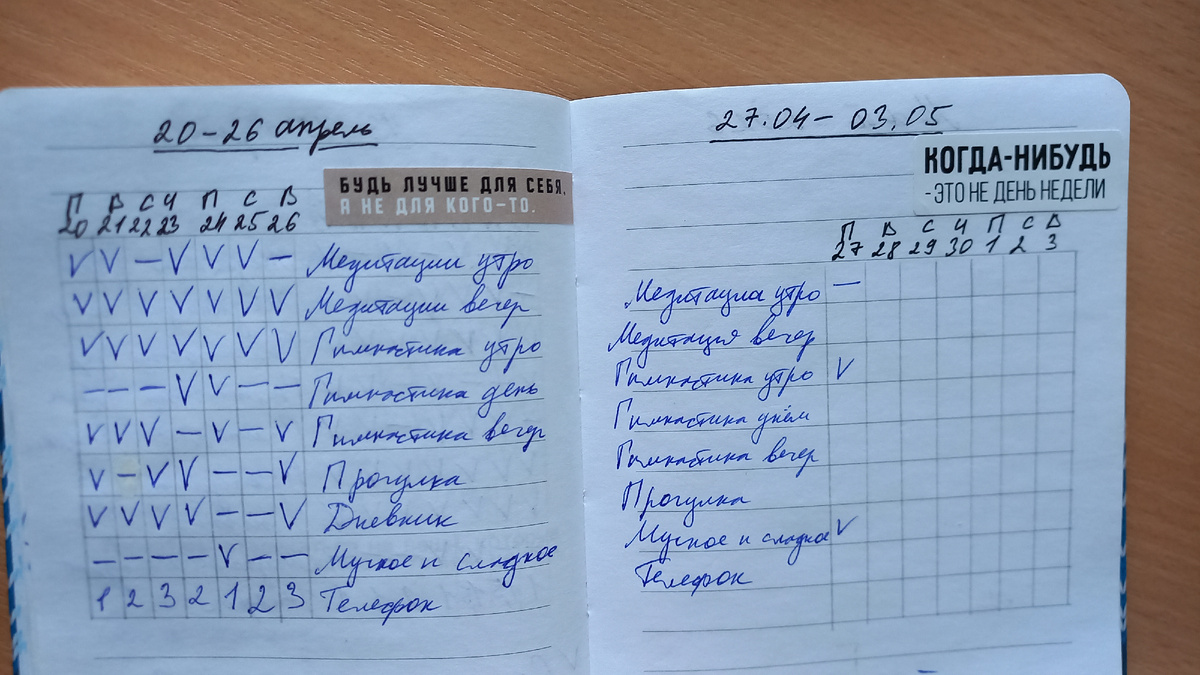 20-26 апрель
БУДЬ ЛУЧШЕ ДЛЯ СЕБЯ,
А НЕ ДЛЯ КОГО-ТО.
П В С Ч П С В
20 21 22 23 24 25 26
V V — V V V — Медитации утро
V V V V V V V Медитации вечер
V V V V V V V Гимнастика утро
— — — V V — — Гимнастика день
V V V — V — V Гимнастика вечер
V — V V — — V Прогулка
V V V V — — V Дневник
— — — — V — — Мучное и сладкое
1 2 3 2 1 2 3 Телефон
27.04 - 03.05
КОГДА-НИБУДЬ
- ЭТО НЕ ДЕНЬ НЕДЕЛИ
П В С Ч П С В
27 28 29 30 1 2 3
Медитация утро —
Медитация вечер
Гимнастика утро V
Гимнастика днём
Гимнастика вечер
Прогулка
Мучное и сладкое V
Телефон